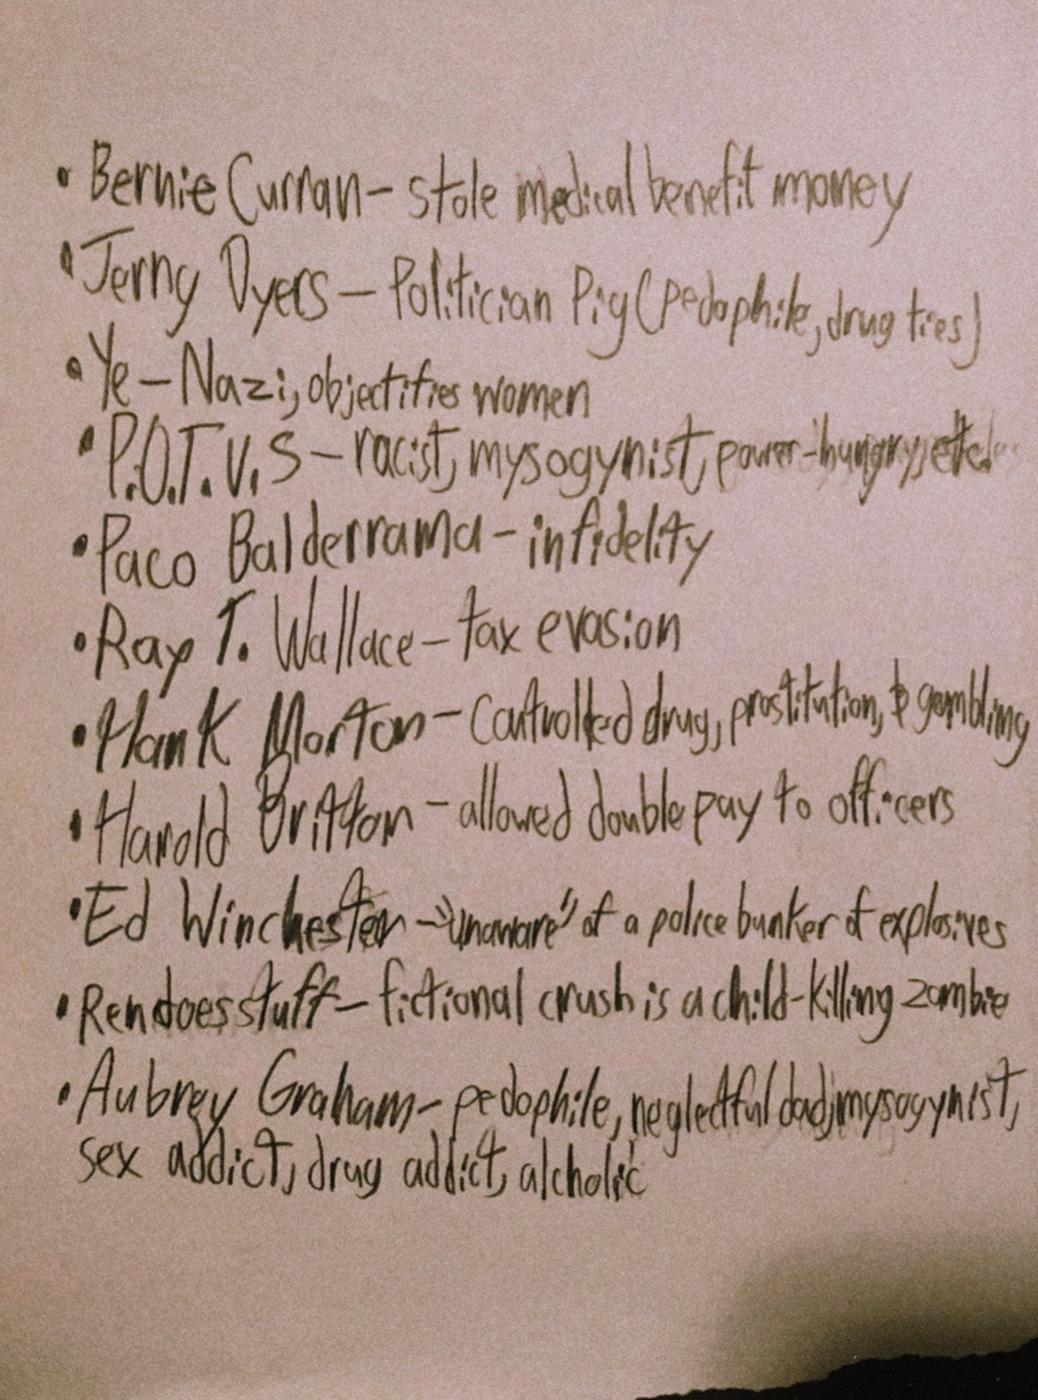 • Bernie Curran - stole medical benefit money
• Jerry Dyers - Politician Pig (pedophile, drug ties)
• Ye - Nazi, objectifies women
• P.O.T.U.S - racist, mysogynist, power-hungry, etc.
• Paco Balderrama - infidelity
• Ray T. Wallace - tax evasion
• Hank Morton - controlled drug, prostitution, & gambling
• Harold Britton - allowed double pay to officers
• Ed Winchester - "unaware" of a police bunker of explosives
• Rendoesstuff - fictional crush is a child-killing zombie
• Aubrey Graham - pedophile, neglectful dad, mysogynist,
sex addict, drug addict, alcholic